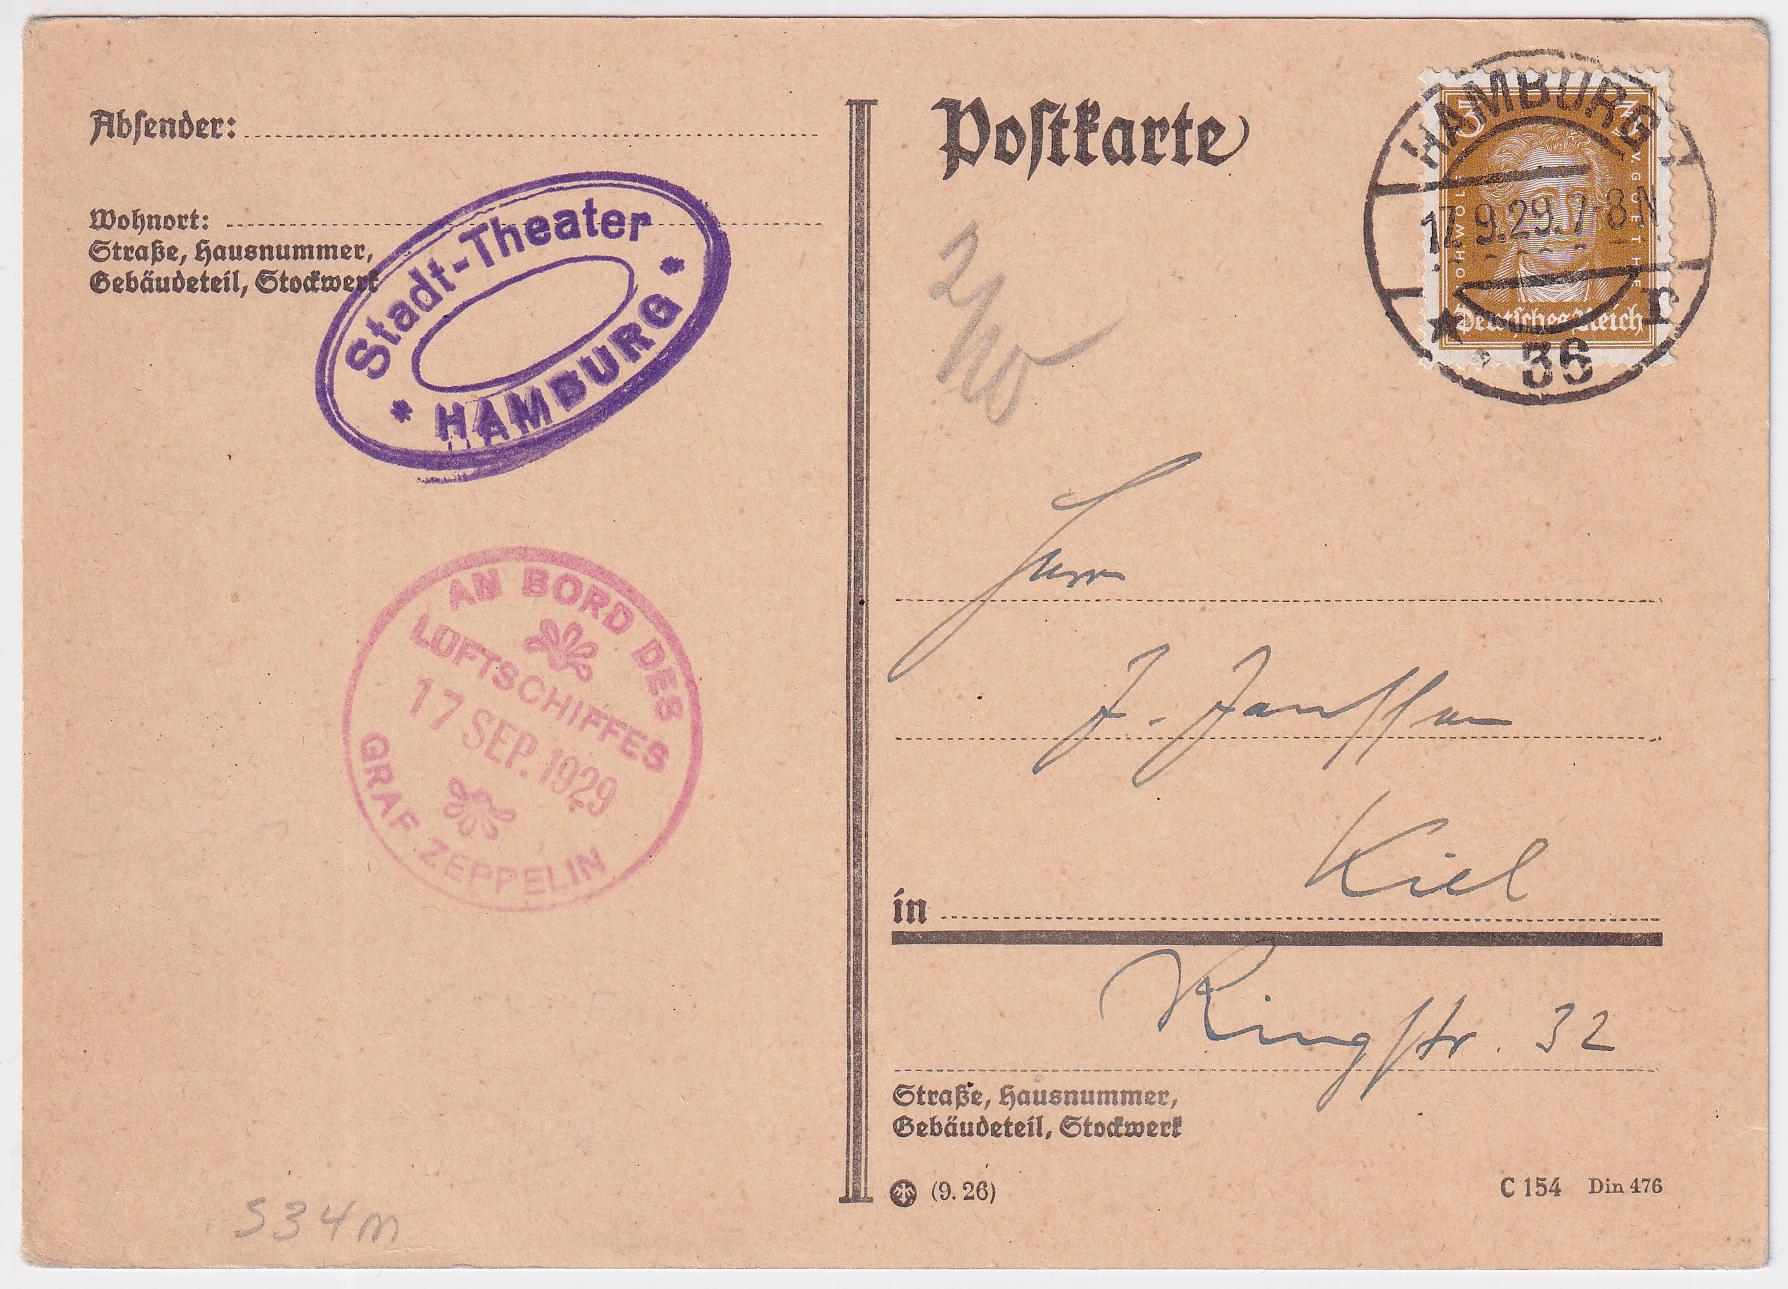 Absender:
Wohnort:
Straße, Hausnummer,
Gebäudeteil, Stockwerk
Stadt-Theater
* HAMBURG *
AN BORD DES
LUFTSCHIFFES
17 SEP. 1929
GRAF ZEPPELIN
S34M
Postkarte
HAMBURG
17.9.29.7-8N
* r
36
3 3
JOH WOLFG V GOETHE
Deutsches Reich
2/10
Herrn
J. Janssen
Kiel
in
Ringstr. 32
Straße, Hausnummer,
Gebäudeteil, Stockwerk
(9. 26)
C 154 Din 476